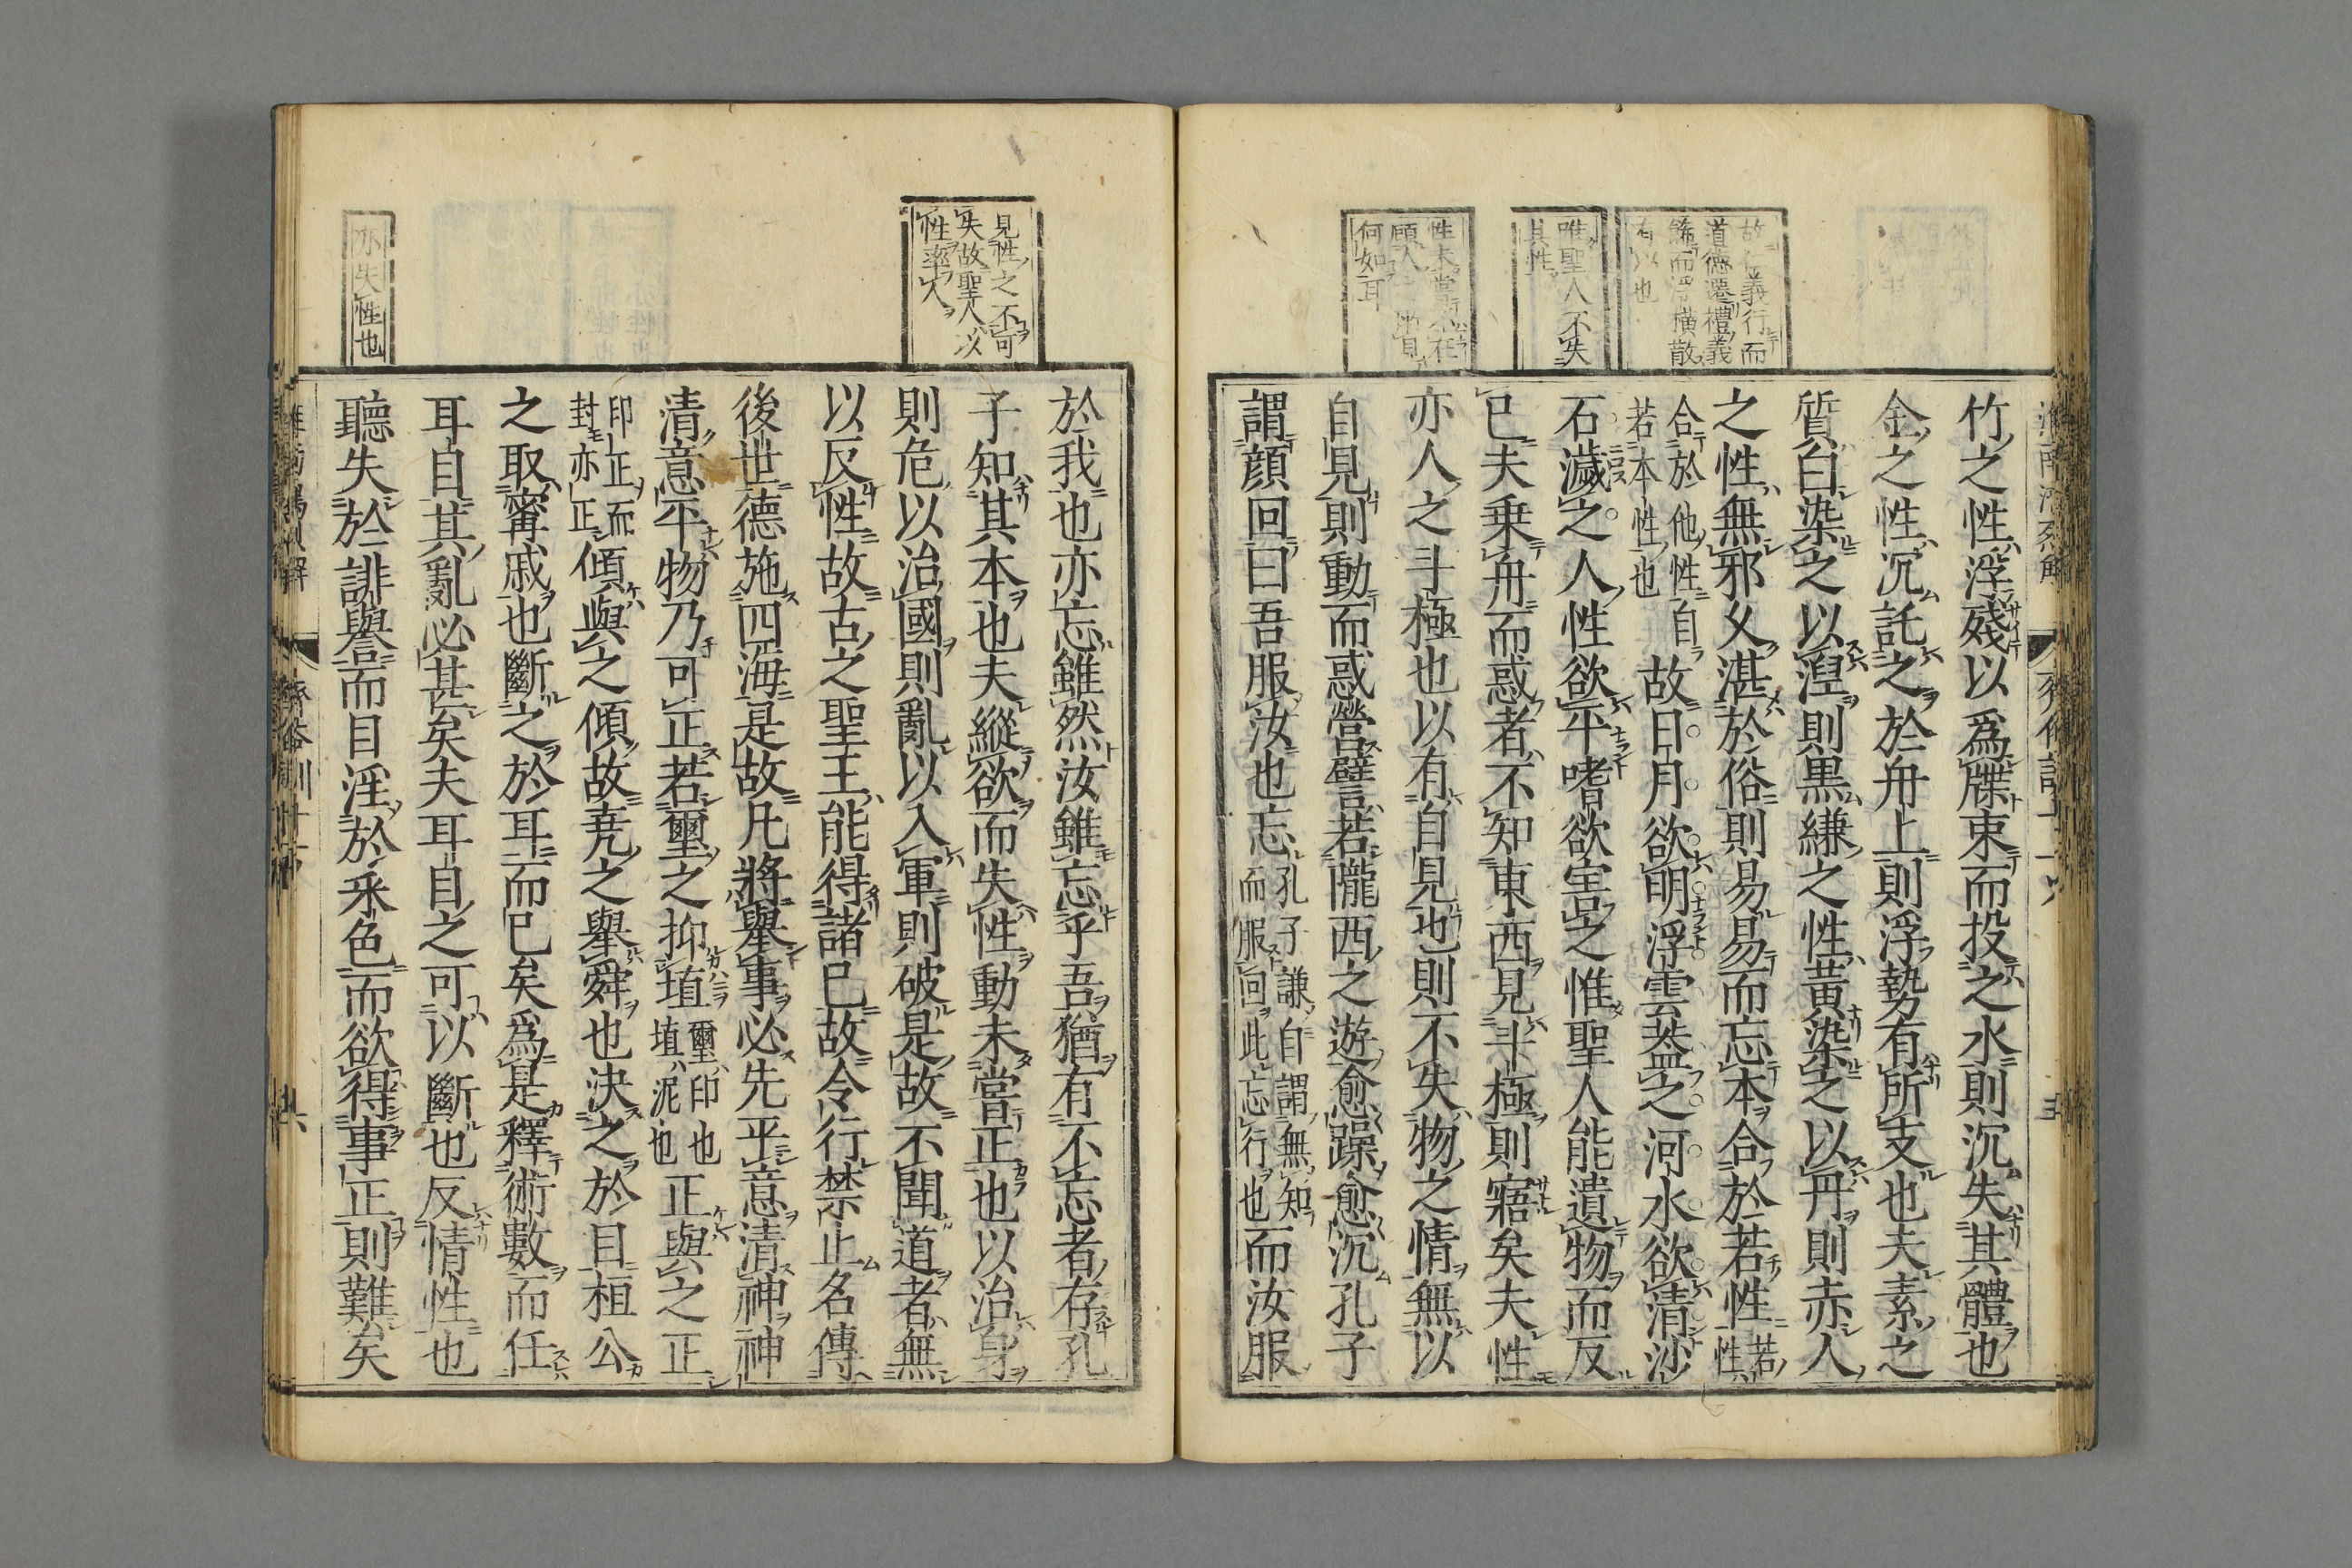 故仁義行而
道德遷禮義
飾而淳樸散
有以也
唯聖人不失
其性
何如耳
竹之性浮殘以爲牒束而投之水則沉失其體也
金之性沉託之於舟上則浮勢有所支也夫素之
質白染之以涅則黒縑之性黃染之以丹則赤人
之性無邪久湛於俗則易易而忘本合於若性若性
合於他性自
若本性也
故日月欲明浮雲葢之河水欲清沙
石濊之人性欲平嗜欲害之惟聖人能遺物而反
已夫乗舟而惑者不知東西見斗極則寤矣夫性
亦人之斗極也以有自見也則不失物之情無以
自見則動而惑營譬若隴西之遊愈躁愈沉孔子
謂顏回曰吾服汝也忘
孔子謙自謂無知
而服回此忘行也
而汝服
見性之不可
失故聖人以
性率人
亦失性也
於我也亦忘雖然汝雖忘乎吾猶有不忘者存孔
子知其本也夫縱欲而失性動未嘗正也以治身
則危以治國則亂以入軍則破是故不聞道者無
以反性故古之聖王能得諸巳故令行禁止名傳
後世德施四海是故凡將舉事必先平意清神神
清意平物乃可正若璽之抑埴
璽印也
埴泥也
正與之正
印正而
封亦正
傾與之傾故堯之舉舜也決之於目桓公
之取甯戚也斷之於耳而已矣爲是釋術數而任
耳目其亂必甚矣夫耳目之可以斷也反情性也
聽失於誹譽而目淫於采色而欲得事正則難矣
齊俗訓十一